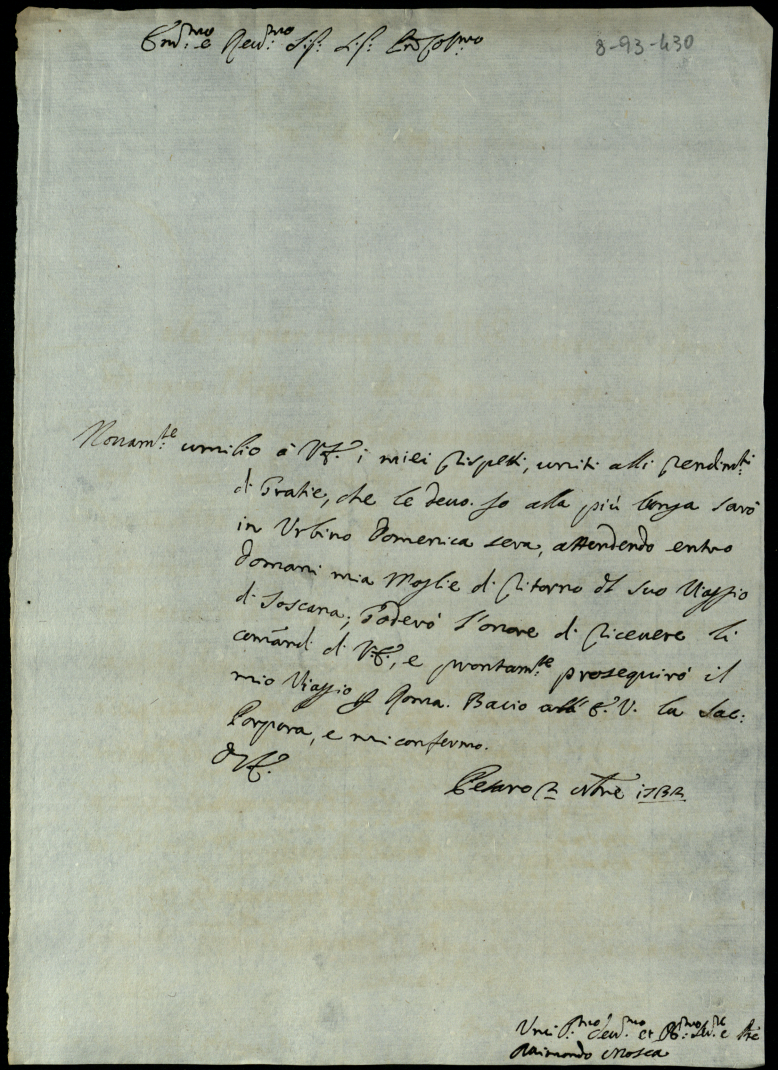 Em.mo e Rev.mo Sig.r Sig.r P̃ron Col.mo
3-93-430
Novam.te umilio à V.E. i miei rispetti, uniti alli rendim.ti
di Gratie, che le devo. Io alla più longa sarò
in Urbino Domenica sera, attendendo entro
domani mia Moglie di ritorno dal suo Viaggio
di Toscana; Goderò l'onore di ricevere li
comãndi di V.E., e prontam.te proseguirò il
mio Viaggio per Roma. Bacio all'E.V. la Sac:
Porpora, e mi confermo.
D V.E.
Pesaro 2 1732
Umi.mo Dev.mo et Obb.mo Se.re
Raimondo Mosca